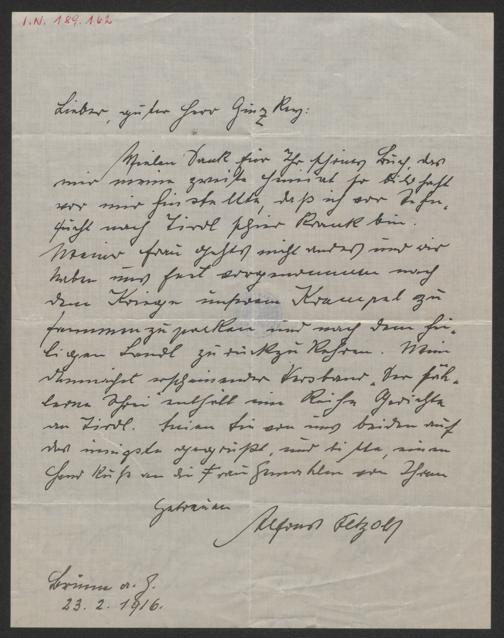 I.N. 189.162
Lieber, guter Herr Ginzkey:
Vielen Dank für Ihr schönes Buch, das
mir meine zweite Heimat so bildhaft
vor mir hinstellte, daß ich vor Sehn-
sucht nach Tirol schier krank bin.
Meiner Frau gehts nicht anders und wir
haben uns fest vorgenommen nach
dem Kriege unseren Krampel zu
sammenzupacken und nach dem hei-
ligen Landl zurückzukehren. Mein
demnächst erscheinender Versband „Der stäh-
lerne Schrei" enthält eine Reihe Gedichte
an Tirol. Seien Sie von uns beiden auf
das innigste gegrüßt, und bitte, einen
Handkuß an die Frau Gemahlin von Ihrem
Getreuen
Alfons Petzold
Brünn a. G.
23. 2. 1916.